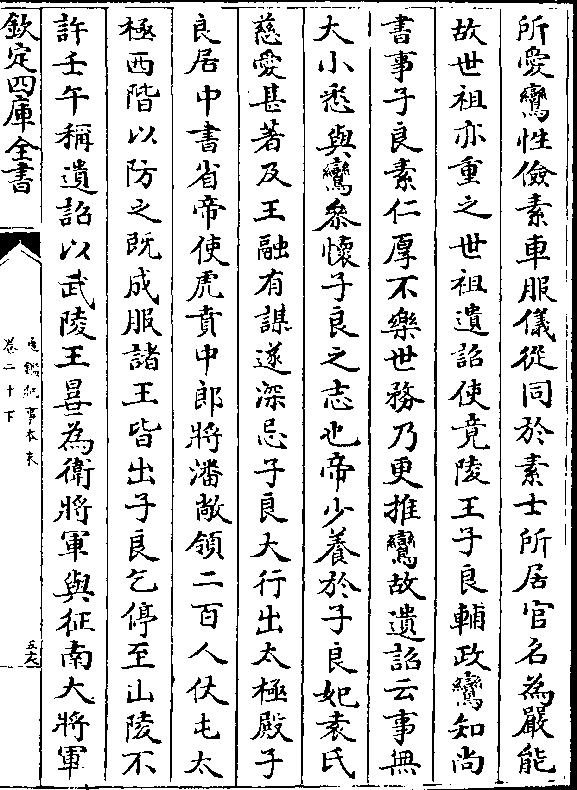 所愛鸞性儉素車服儀從同於素士所居官名為嚴能
故世祖亦重之世祖遺詔使竟陵王子良輔政鸞知尚
書事子良素仁厚不樂世務乃更推鸞故遺詔云事無
大小悉與鸞叅懷子良之志也帝少養於子良妃袁氏
慈愛甚著及王融有謀遂深忌子良大行出太極殿子
良居中書省帝使虎賁中郎將潘敞領二百人仗屯太
極西階以防之既成服諸王皆出子良乞停至山陵不
許壬午稱遺詔以武陵王曅為衛將軍與征南大將軍
欽定四庫全書
通鑑紀事本末
卷二十下
五六